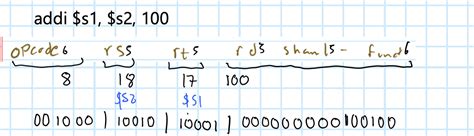 addi $s1, $s2, 100
opcode6 rs5 rt5 rd5 shamt5- funct6
8 18 17 100
$s2 $s1
001000 | 10010 | 10001 | 0000000000100100